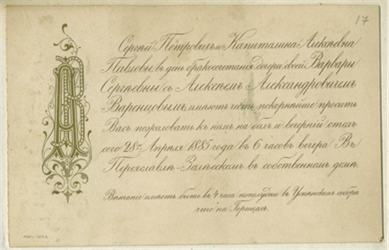 17
Сергѣй Петровичъ и Капиталина Алексѣевна
Павловы, въ день бракосочетанія дочери своей Варвары
Сергѣевны съ Алексѣемъ Александровичемъ
Варенцовымъ, имѣютъ честь покорнѣйше просить
Васъ пожаловать къ нимъ на балъ и вечерній столъ
сего 28го Апрѣля 1885 года въ 6 часовъ вечера. Въ
Переславлѣ-Залѣсскомъ, въ собственномъ домѣ.
Вѣнчаніе имѣетъ быть въ 4 часа пополудни въ Успенскомъ соборѣ
что на Горицахъ.